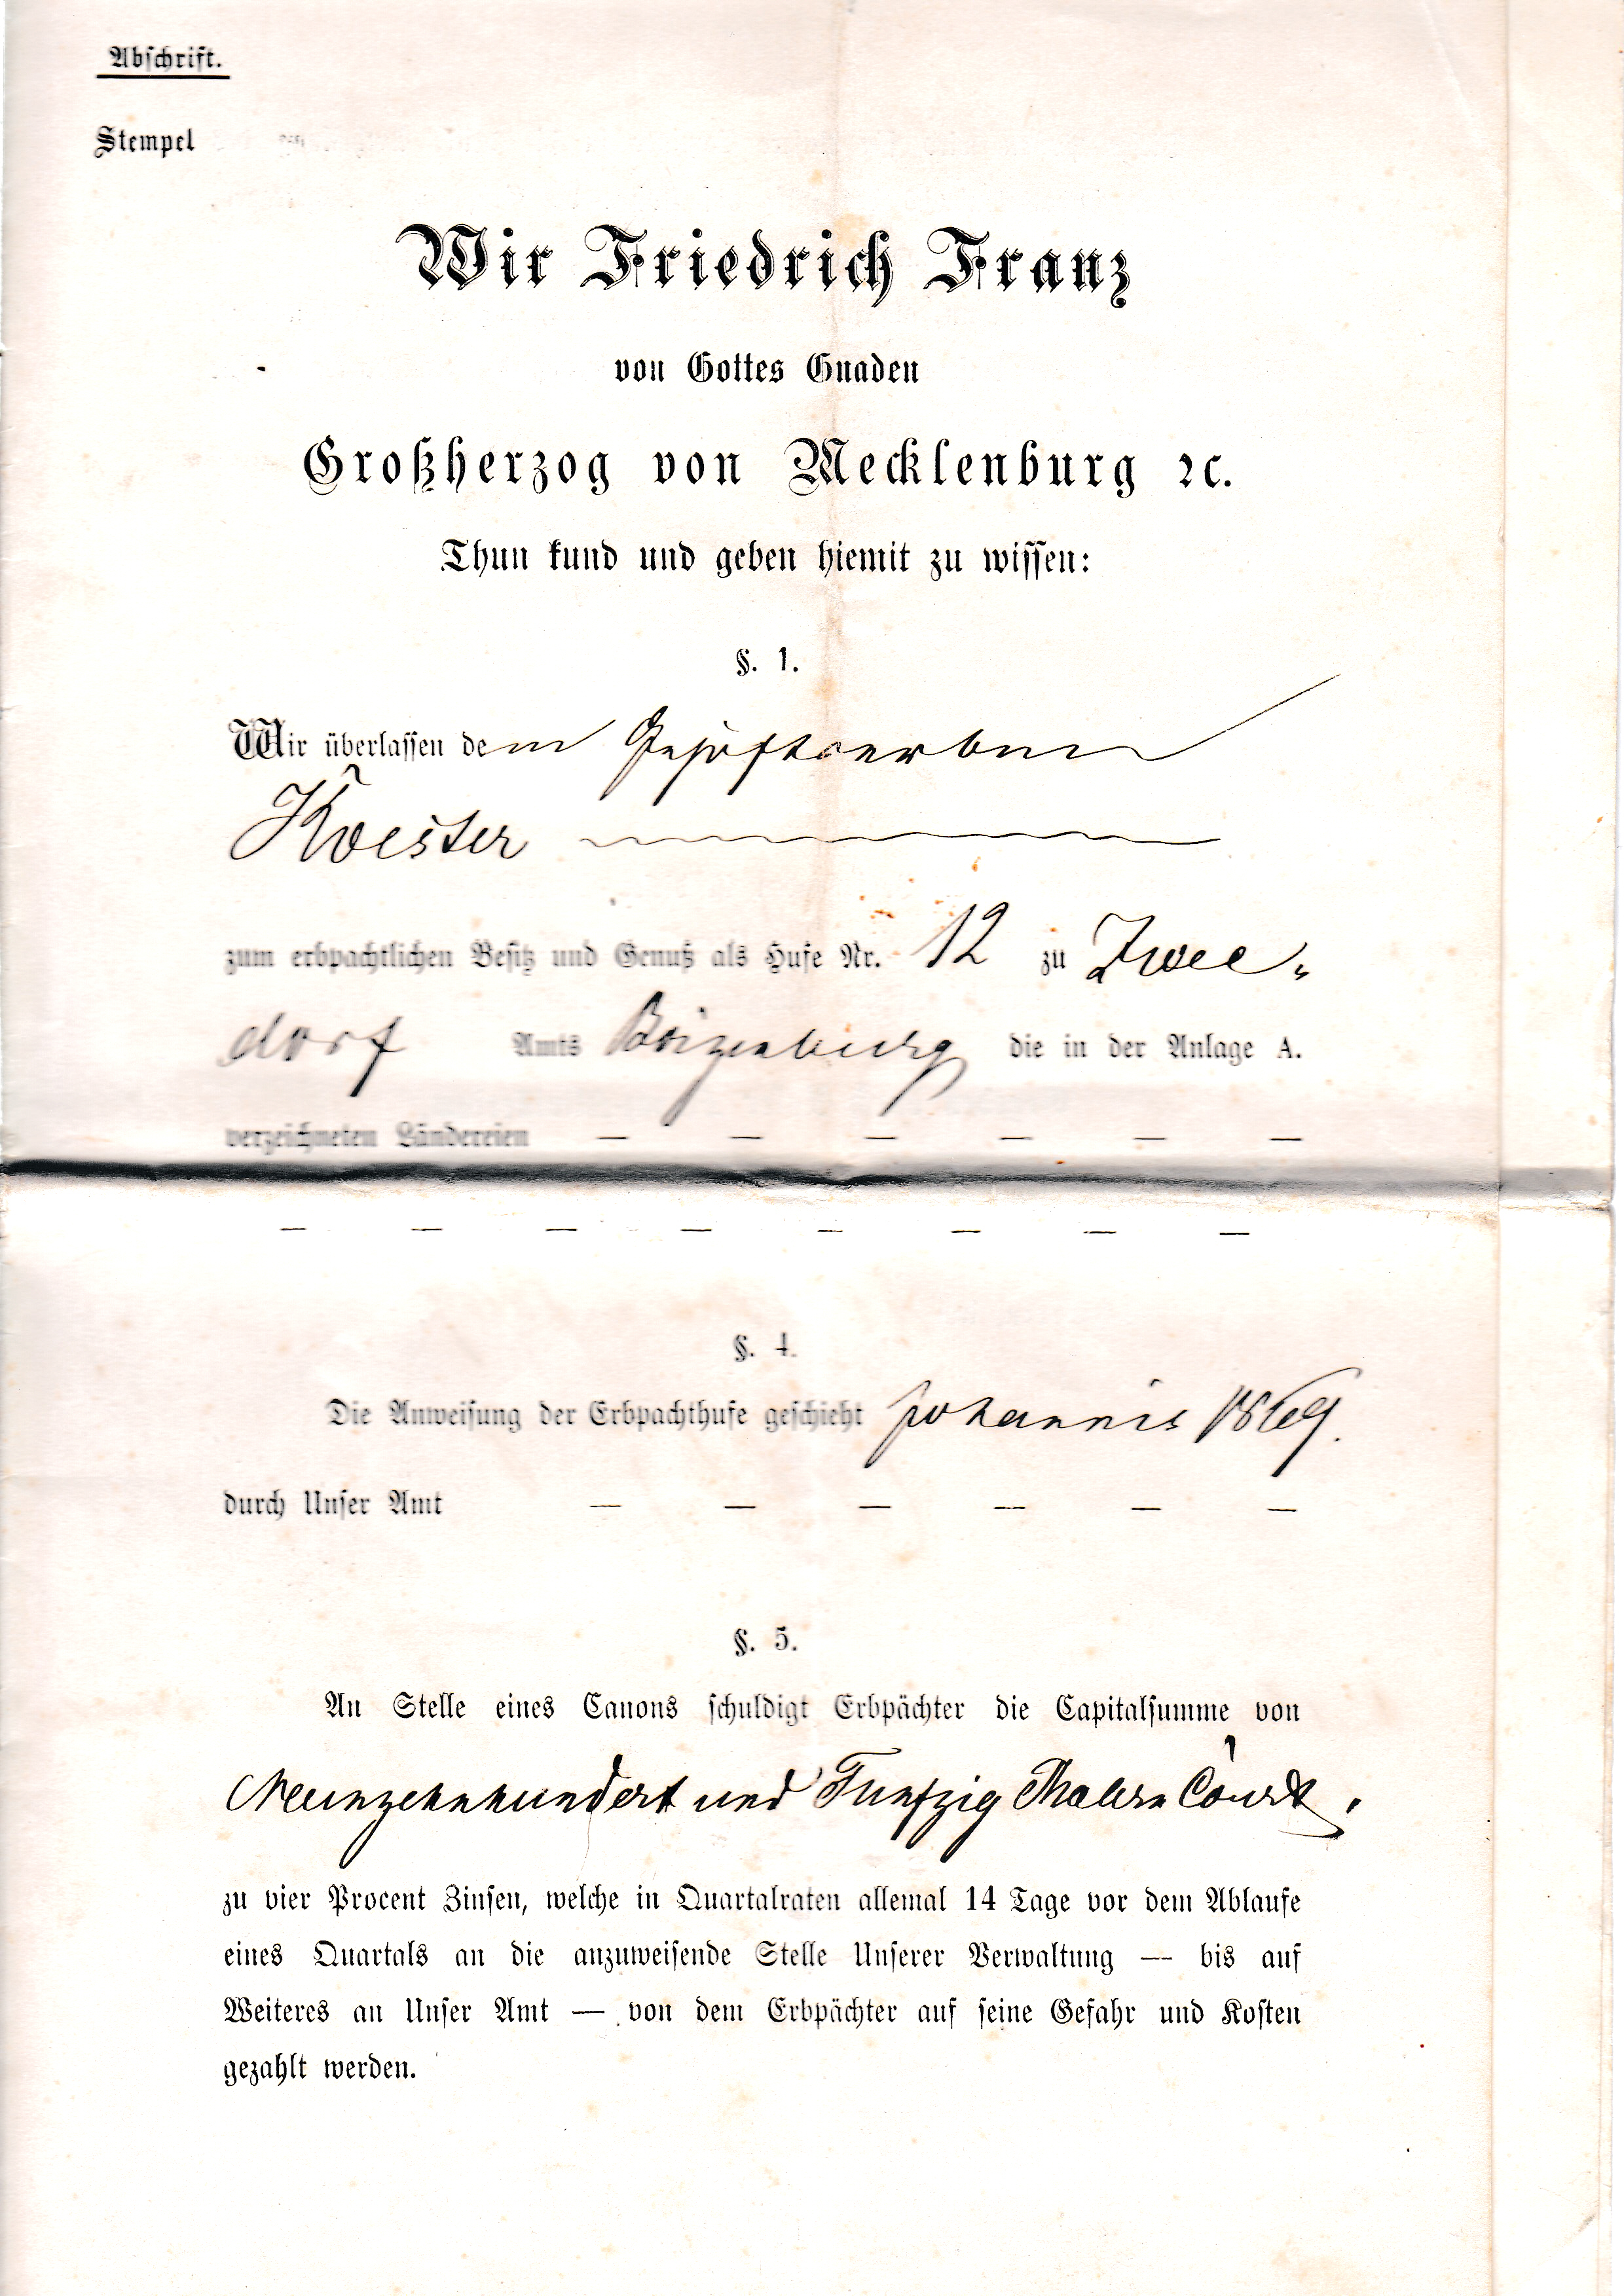 Abschrift.
Stempel
Wir Friedrich Franz
von Gottes Gnaden
Großherzog von Mecklenburg ꝛc.
Thun kund und geben hiemit zu wissen:
§. 1.
Wir überlassen dem
Koester
zum erbpachtlichen Besitz und Genuß als Hufe Nr. 12 zu Zwee-
dorf Amts Boizenburg die in der Anlage A.
verzeichneten Ländereien — — — — — —
— — — — — — — —
§. 4.
Die Anweisung der Erbpachthufe geschieht Johannis 1869.
durch Unser Amt — — — — — —
§. 5.
An Stelle eines Canons schuldigt Erbpächter die Capitalsumme von
Neunzehnhundert und Funfzig Thalern Court,
zu vier Procent Zinsen, welche in Quartalraten allemal 14 Tage vor dem Ablaufe
eines Quartals an die anzuweisende Stelle Unserer Verwaltung — bis auf
Weiteres an Unser Amt — von dem Erbpächter auf seine Gefahr und Kosten
gezahlt werden.